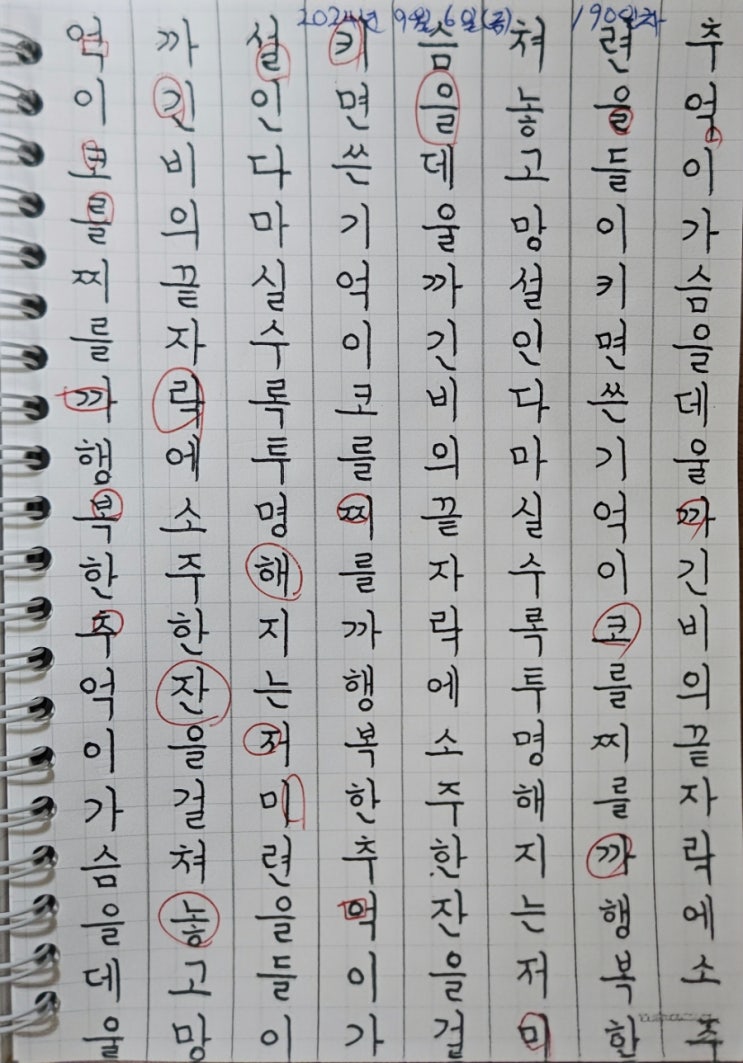 2024년 9월 6일(금) 190일차
억이코를찌를까행복한추억이가슴을데울
까긴비의끝자락에소주한잔을걸쳐놓고망
설인다마실수록투명해지는저미련을들이
키면쓴기억이코를찌를까행복한추억이가
슴을데울까긴비의끝자락에소주한잔을걸
쳐놓고망설인다마실수록투명해지는저미
련을들이키면쓴기억이코를찌를까행복한
추억이가슴을데울까긴비의끝자락에소주